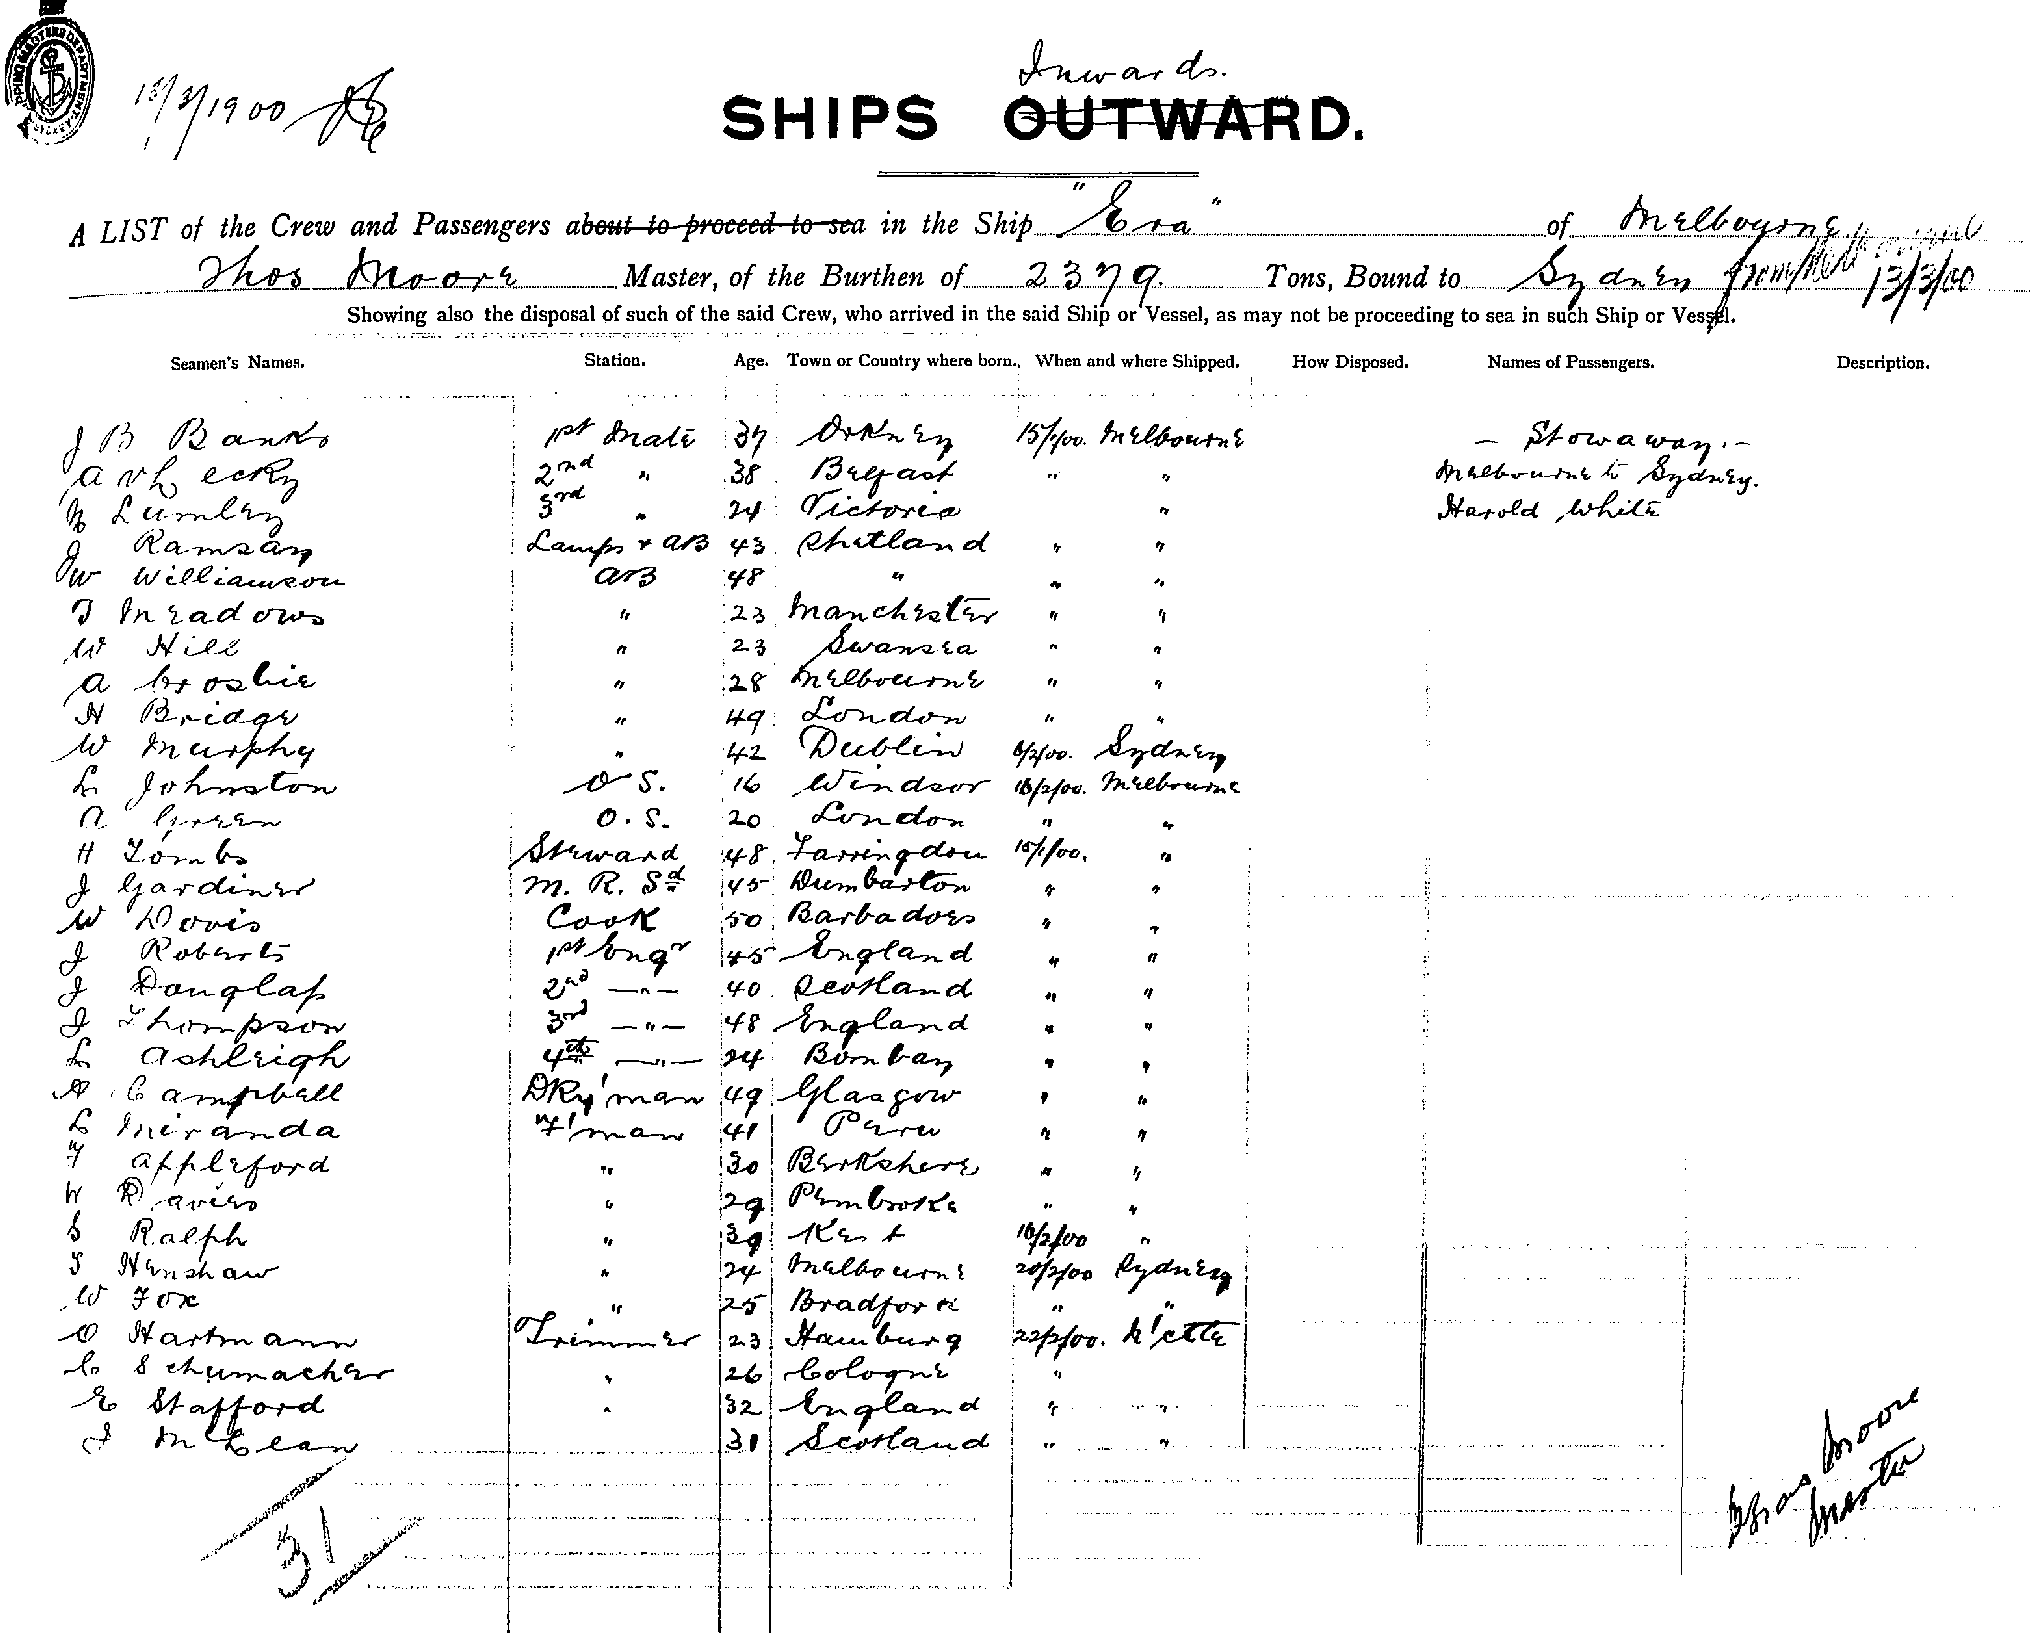 13/3/1900
Inwards.
SHIPS OUTWARD.
A LIST of the Crew and Passengers about to proceed to sea in the Ship "Era" of Melbourne
Thos Moore Master, of the Burthen of 2379. Tons, Bound to Sydney from Melbourne 13/3/00
Showing also the disposal of such of the said Crew, who arrived in the said Ship or Vessel, as may not be proceeding to sea in such Ship or Vessel.
Seamen's Names. Station. Age. Town or Country where born. When and where Shipped. How Disposed. Names of Passengers. Description.
J B Banks 1st Mate 37 Orkney 15/1/00. Melbourne — Stowaway. —
A ecky 2nd " 38 Belfast " " Melbourne to Sydney.
Lumley 3rd " 24 Victoria " Harold White
J Ramsay Lamps & AB 43 Shetland " "
W Williamson AB 48 " " "
T Meadows " 23 Manchester " "
W Hill " 23 Swansea " "
A Crosbie " 28 Melbourne " "
H Bridge " 49 London " "
W Murphy " 42 Dublin 6/2/00. Sydney
L Johnston O S. 16 Windsor 16/2/00. Melbourne
A Green O. S. 20 London " "
H Tombs Steward 48 Farringdon 15/1/00. "
J Gardiner M. R. Sd 45 Dumbarton " "
W Davis Cook 50 Barbadoes " "
J Roberts 1st Engr 45 England " "
J Douglass 2nd —"— 40 Scotland " "
J Thompson 3rd —"— 48 England " "
L Ashleigh 4th —"— 24 Bombay " "
A Campbell DKy'man 49 Glasgow " "
L Miranda F'man 41 Peru " "
F Appleford " 30 Berkshere " "
W Davies " 29 Pembroke " "
S Ralph " 39 Kent 16/2/00 "
T Henshaw " 24 Melbourne 20/2/00 Sydney
W Fox " 25 Bradford " "
O Hartmann Trimmer 23 Hamburg 22/2/00. N'ctle
C Schumacher " 26 Cologne "
E Stafford " 32 England " "
J McLean 31 Scotland " "
31
Thos Moore
Master